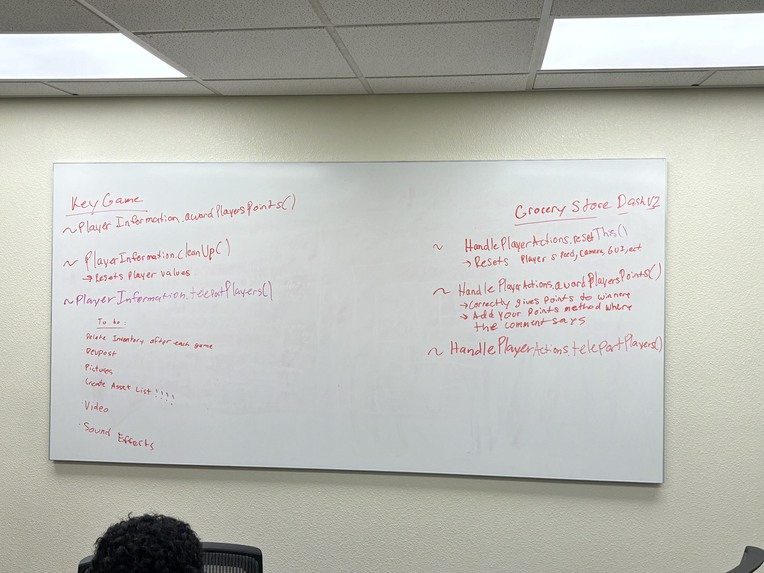 Key Game
~Player Information.awardPlayersPoints()
~ PlayerInformation.cleanUp()
→ Resets Player values
~PlayerInformation.teleportPlayers()
To Do
Delete Inventory after each game
Pictures
Create Asset List !!!!
· Video
· Sound Effects
Grocery Store Dash V2
~ HandlePlayerActions.resetThis()
→ Resets Player speed, Camera, GUI, ect
~ HandlePlayerActions.awardPlayersPoints()
→ Correctly gives Points to winners
→ Add your Points method where
the comment says
~ HandlePlayerActions.teleportPlayers()